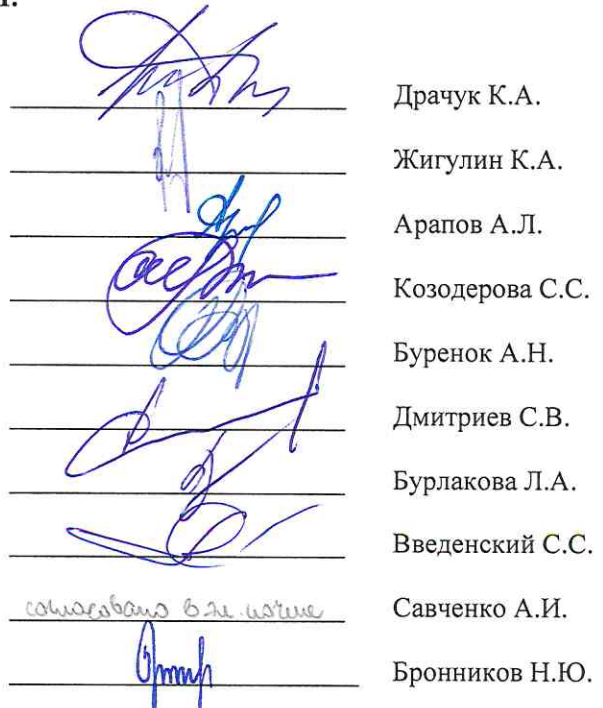 Драчук К.А.
Жигулин К.А.
Арапов А.Л.
Козодерова С.С.
Буренок А.Н.
Дмитриев С.В.
Бурлакова Л.А.
Введенский С.С.
согласовано в эл. почте Савченко А.И.
Бронников Н.Ю.